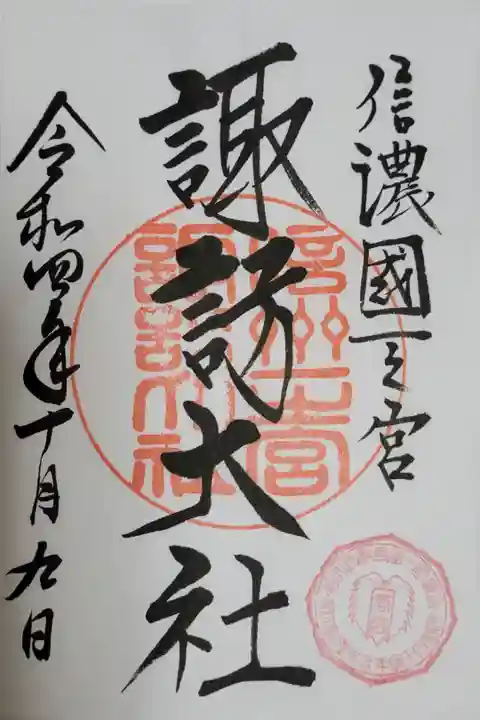 信濃國一之宮
諏訪大社
信州一之宮
諏訪大社
令和四年十月九日